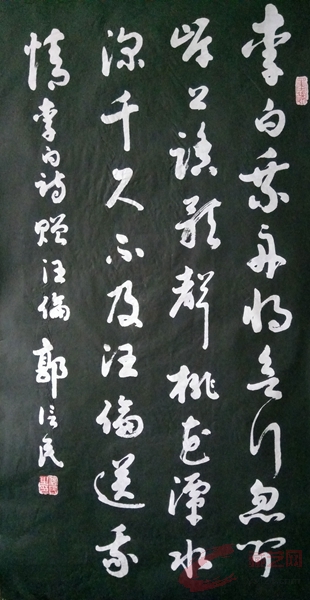 李白乘舟将欲行忽闻
岸上踏歌声桃花潭水
深千尺不及汪伦送我
情李白诗赠汪伦郭信民